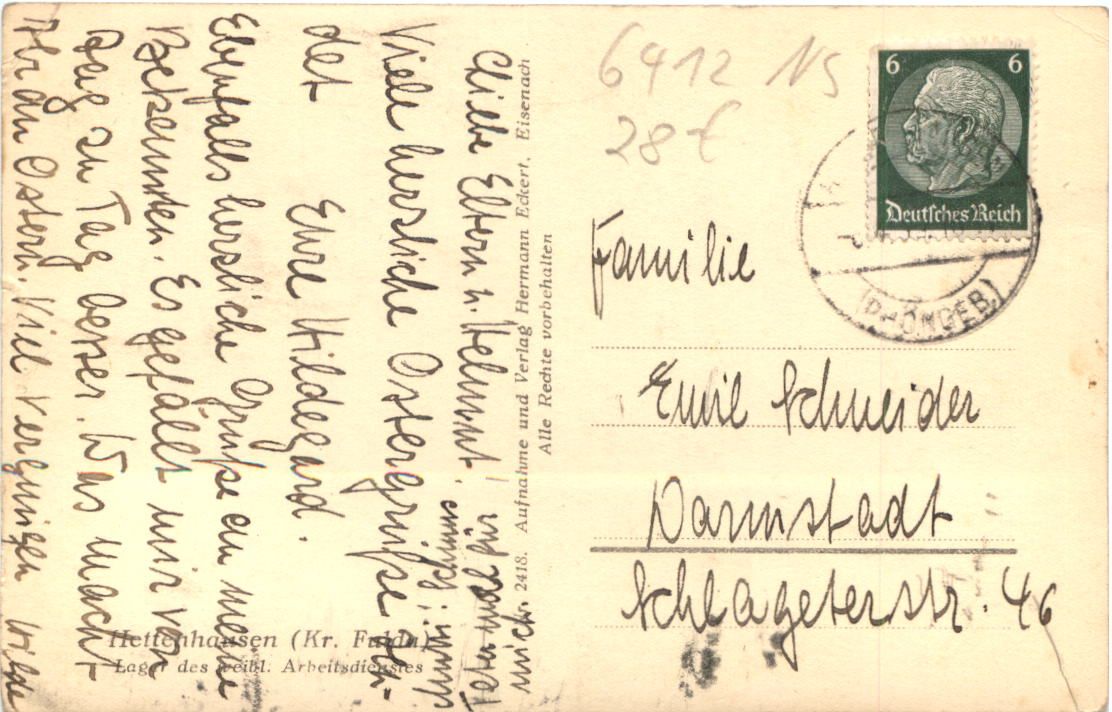 Liebe Eltern u. Helmut!
Viele herzliche Ostergrüße sen-
det
Eure Hildegard.
Ebenfalls herzliche Grüße an meine
Bekannten. Es gefällt mir von
Tag zu Tag besser. Was macht
Ihr an Ostern. Viel Vergnügen
für
mich.
Hettenhausen (Kr. Fulda)
Lager des weibl. Arbeitsdienstes
2418. Aufnahme und Verlag Hermann Eckert, Eisenach
Alle Rechte vorbehalten
6412 NS
28 €
6 6
Deutsches Reich
(RHÖNGEB.)
Familie
Emil Schneider
Darmstadt
Schlageterstr. 46